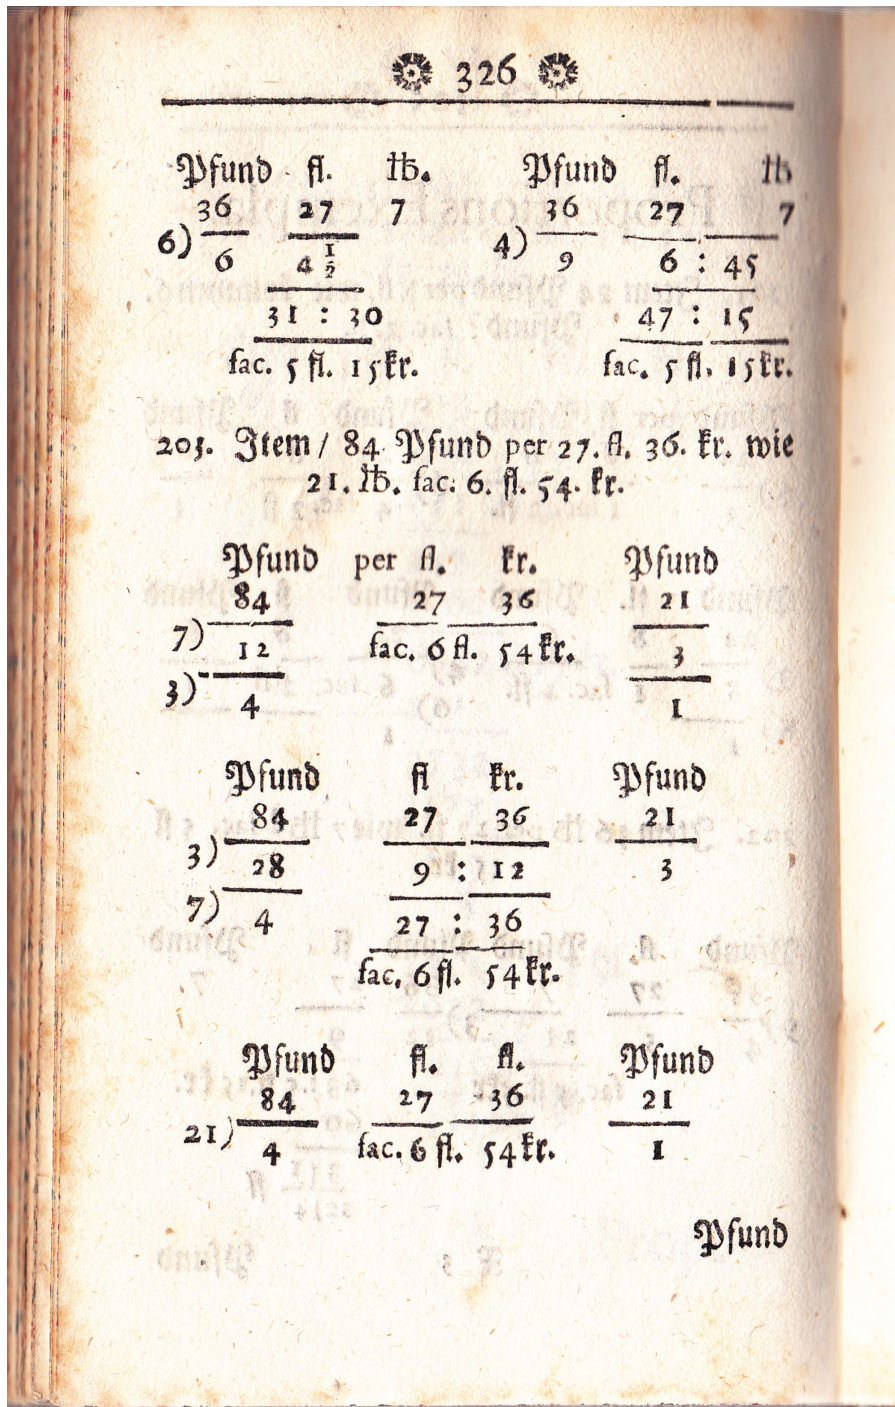 326
Pfund fl. ℔. Pfund fl. ℔
36 27 7 36 27 7
6) 6 4 1/2 4) 9 6 : 45
31 : 30 47 : 15
fac. 5 fl. 15kr. fac. 5 fl. 15kr.
203. Item / 84 Pfund per 27. fl. 36. kr. wie
21. ℔. fac. 6. fl. 54. kr.
Pfund per fl. kr. Pfund
84 27 36 21
7) 12 fac. 6 fl. 54kr. 3
3) 4 1
Pfund fl kr. Pfund
84 27 36 21
3) 28 9 : 12 3
7) 4 27 : 36
fac. 6 fl. 54kr.
Pfund fl. fl. Pfund
84 27 36 21
21) 4 fac. 6 fl. 54kr. 1
Pfund